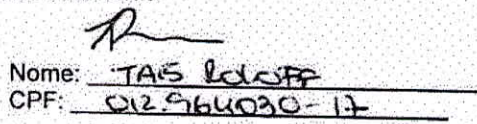 Nome: TAIS ROLOFF
CPF: 012.964030-17